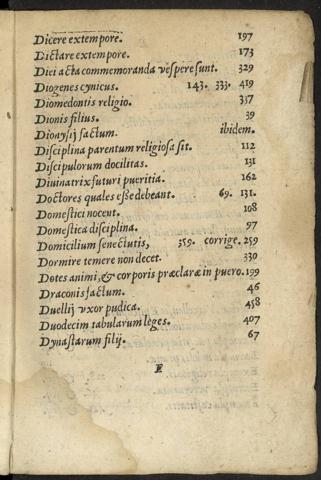 Dicere extempore. 197
Dictare extempore. 173
Diei acta commemoranda vesperesunt. 329
Diogenes cynicus. 143. 333. 419
Diomedontis religio. 337
Dionis filius. 39
Dionysij factum. ibidem.
Disciplina parentum religiosa sit. 112
Discipulorum docilitas. 131
Diuinatrix futuri pueritia. 162
Doctores quales esse debeant. 69. 131.
Domestici nocent. 108
Domestica disciplina. 97
Domicilium senectutis, 359. corrige. 259
Dormire temere non decet. 330
Dotes animi, & corporis præclaræ in puero. 199
Draconis factum. 46
Duellij vxor pudica. 458
Duodecim tabularum leges. 407
Dynastarum filij. 67